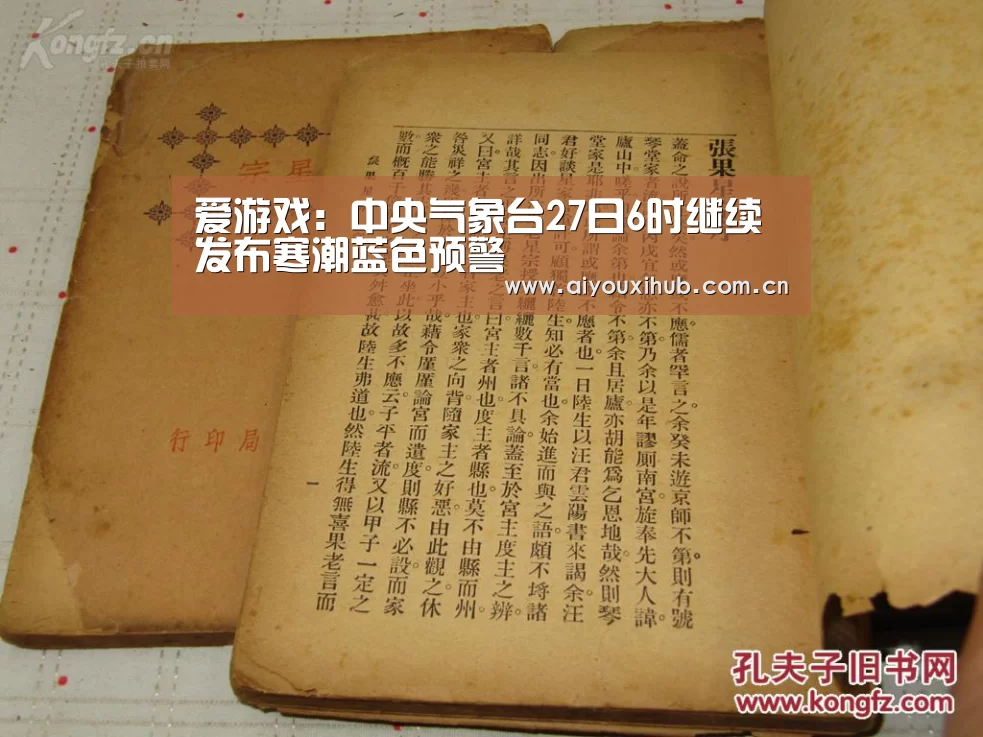 Kongfz.cn
爱游戏：中央气象台27日6时继续
发布寒潮蓝色预警
www.aiyouxihub.com.cn
宗
局印行
張果星
蓋命之說
然或
不應儒者罕言之余癸未遊京師不第則有號
琴堂家者
丙戌宜
亦不第乃余以是年謬厠南宮旋奉先大人諱
廬山中嗟乎
論余第也
令不第余且居廬亦胡能爲乞恩地哉然則琴
堂家是耶非
所謂或應
不應者也一日陸生以汪君雲陽書來謁余汪
君好談星家
可顧獨
陸生知必有當也余始進而與之語頗不埒諸
同志因出所
星宗授
纚纚數千言諸不具論蓋至於宮主度主之辨
詳哉其言之
之言曰宮主者州也度主者縣也莫不由縣而州
又曰宮主者
家主也家衆之向背隨家主之好惡由此觀之休
咎災祥之幾
小乎哉藉令厪厪論宮而遺度則縣不必設而家
衆之能勝其
坐此以故多不應云子平者流又以甲子一定之
數而概百千
舛愈甚故陸生弗道也然陸生得無喜果老言而
一
孔夫子旧书网
www.kongfz.com